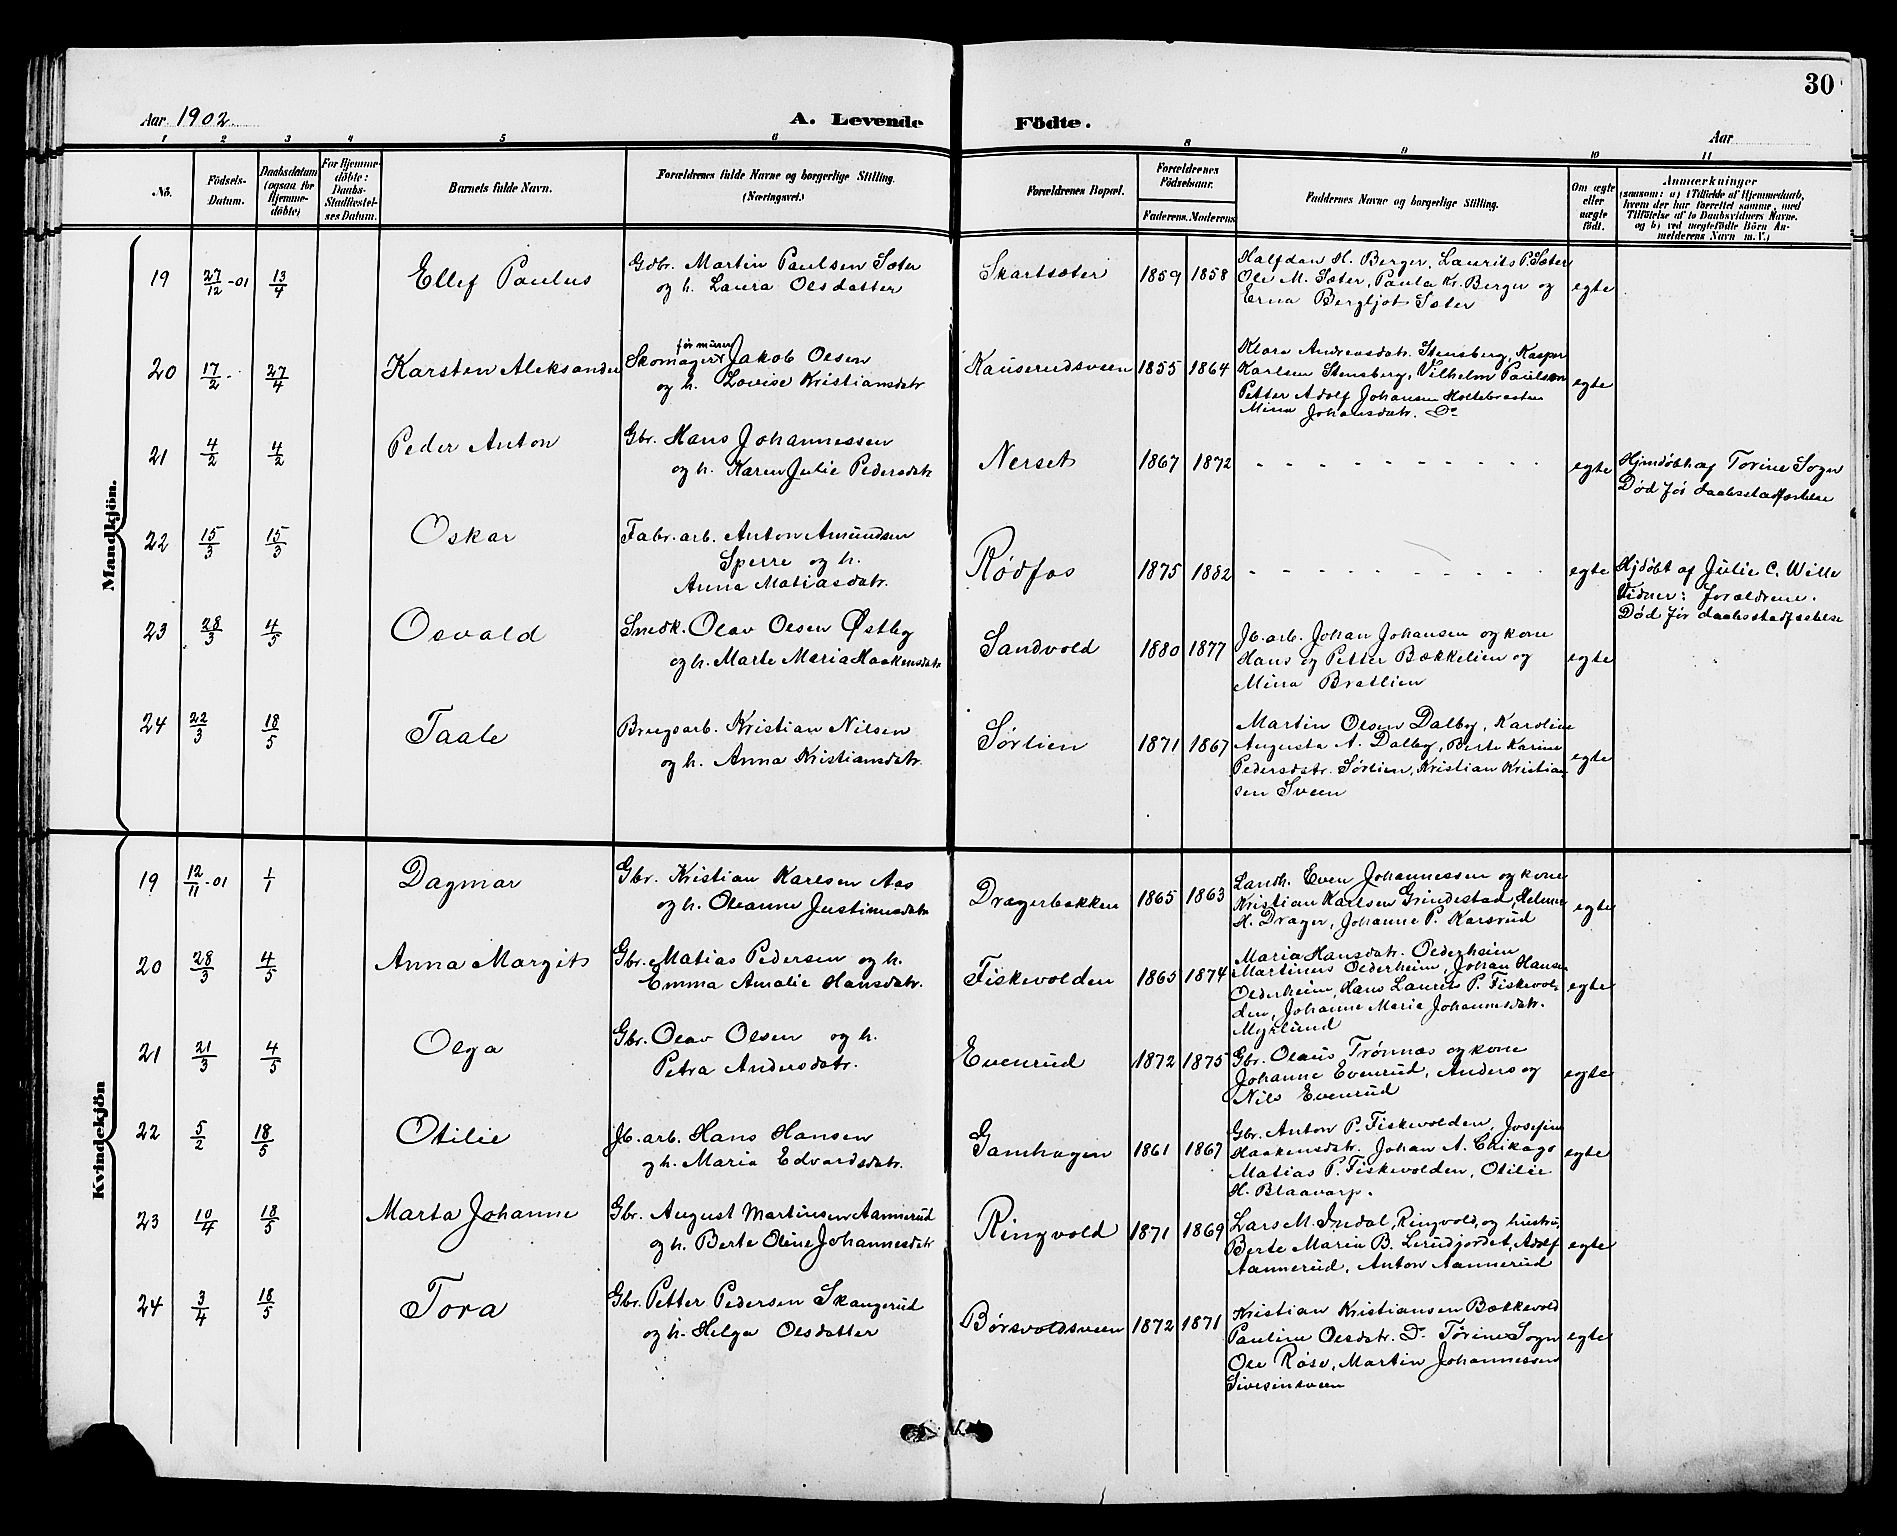 30
Aar 1902
A. Levende Födte.
Aar
1 2 3 4 5 6 8 9 10 11
No. Födsels-Datum. Daabsdatum (ogsaa for Hjemmedöbte) For Hjemmedöbte: Daabs-Stadfæstelses Datum. Barnets fulde Navn. Forældrenes fulde Navne og borgerlige Stilling. (Næringsvei.) Forældrenes Bopæl. Forældrenes Födselsaar. Faderens. Moderens. Faddernes Navne og borgerlige Stilling. Om ægte eller uægte födt. Anmærkninger (saasom: a) i Tilfælde af Hjemmedaab, hvem der har forrettet samme, med Tilföielse af to Daabsvidners Navne. og b) ved uægtefödte Börn Anmelderens Navn m. V.)
Mandkjön.
19 27/12 -01 13/4 Ellef Paulus Gdbr. Martin Paulsen Sæter
og h. Laura Olsdatter
Skartsæter 1859 1858
Halfdan H. Berger, Laurits P. Sæter
Ole M. Sæter, Paula Kr. Berger og
Erna Bergljot Sæter
egte
20 17/2 - 27/4 Karsten Aleksander
før murer
Skomager Jakob Olsen
og h. Lovise Kristiansdatr
Kauserudsveen 1855 1864
Klara Andreasdatr. Stensberg, Kasper
Karlsen Stensberg, Vilhelm Paulsen
Petter Adolf Johansen Holtebraaten
Mina Johansdatr. Do
egte
21 4/2 4/2 Peder Anton
Gbr. Hans Johannessen
og h. Karen Julie Pedersdatr
Nerset 1867 1872 - - - - - - - - - - egte
Hjmdøbt af Torine Sogn
Død før daabsstadfæstelse
22 15/3 15/3 Oskar
Fabr. arb. Anton Amundsen
Sperre og h.
Anna Matiasdatr.
Rødfos 1875 1882 - - - - - - - - - - egte
Hjdøbt af Julie C. Wille
Vidner: forældrene.
Død før daabsstadfæstelse
23 28/3 4/5 Osvald
Snedk. Olav Olsen Østby
og h. Marte Maria Haakensdatr
Sandvold 1880 1877
Jb. arb. Johan Johansen og kone
Hans og Petter Bækkelien og
Mina Bratlien
egte
24 22/3 18/5 Taale
Brugsarb. Kristian Nilsen
og h. Anna Kristiansdatr.
Sørlien 1871 1867
Martin Olsen Dalby, Karoline
Augusta A. Dalby, Berte Karine
Pedersdatr. Sørlien, Kristian Kristian
sen Sveen
egte
Kvindekjön
19 12/11 -01 1/1 Dagmar
Gbr. Kristian Karlsen Aas
og h. Oleanne Justinusdatr
Dragerbakken 1865 1863
Landh. Even Johannessen og kone
Kristian Karlsen Grindestad,
H. Drager, Johanne P. Karsrud
egte
20 28/3 4/5 Anna Margit
Gbr. Matias Pedersen og h.
Emma Amalie Hansdatr.
Fiskevolden 1865 1874
Maria Hansdatr. Olderheim
Martinus Olderheim, Johan Hansen
Olderheim, Hans Laurits P. Fiskevol-
den, Johanne Marie Johannesdatr.
Myrlund
egte
21 21/3 4/5 Olga
Gbr. Olav Olsen og h.
Petra Andersdatr.
Evenrud 1872 1875
Gbr. Olaus Trønnæs og kone
Johanne Evenrud, Anders og
Nils Evenrud
egte
22 5/2 18/5 Otilie
Jb. arb. Hans Hansen
og h. Maria Edvardsdatr.
Gamhagen 1861 1867
Gbr. Anton P. Fiskevolden, Josefine
Haakensdatr. Johan A. Chikago
Matias P. Fiskevolden, Otilie
H. Blaavarp.
egte
23 10/4 18/5 Marta Johanne
Gbr. August Martinsen Aannerud
og h. Berte Oline Johannesdatr
Ringvold 1871 1869
Lars M. Indal, Ringvold, og hustru,
Berte Maria B. Lerudjordet, Adolf
Aannerud, Anton Aannerud
egte
24 3/4 18/5 Tora
Gbr. Petter Pedersen Skangerud
og h. Helga Olsdatter
Børsvoldsveen 1872 1871
Kristian Kristiansen Bækkevold
Pauline Olsdatr. Do Torine Sogn
Ole Røse, Martin Johannessen
Sivesindsveen
egte